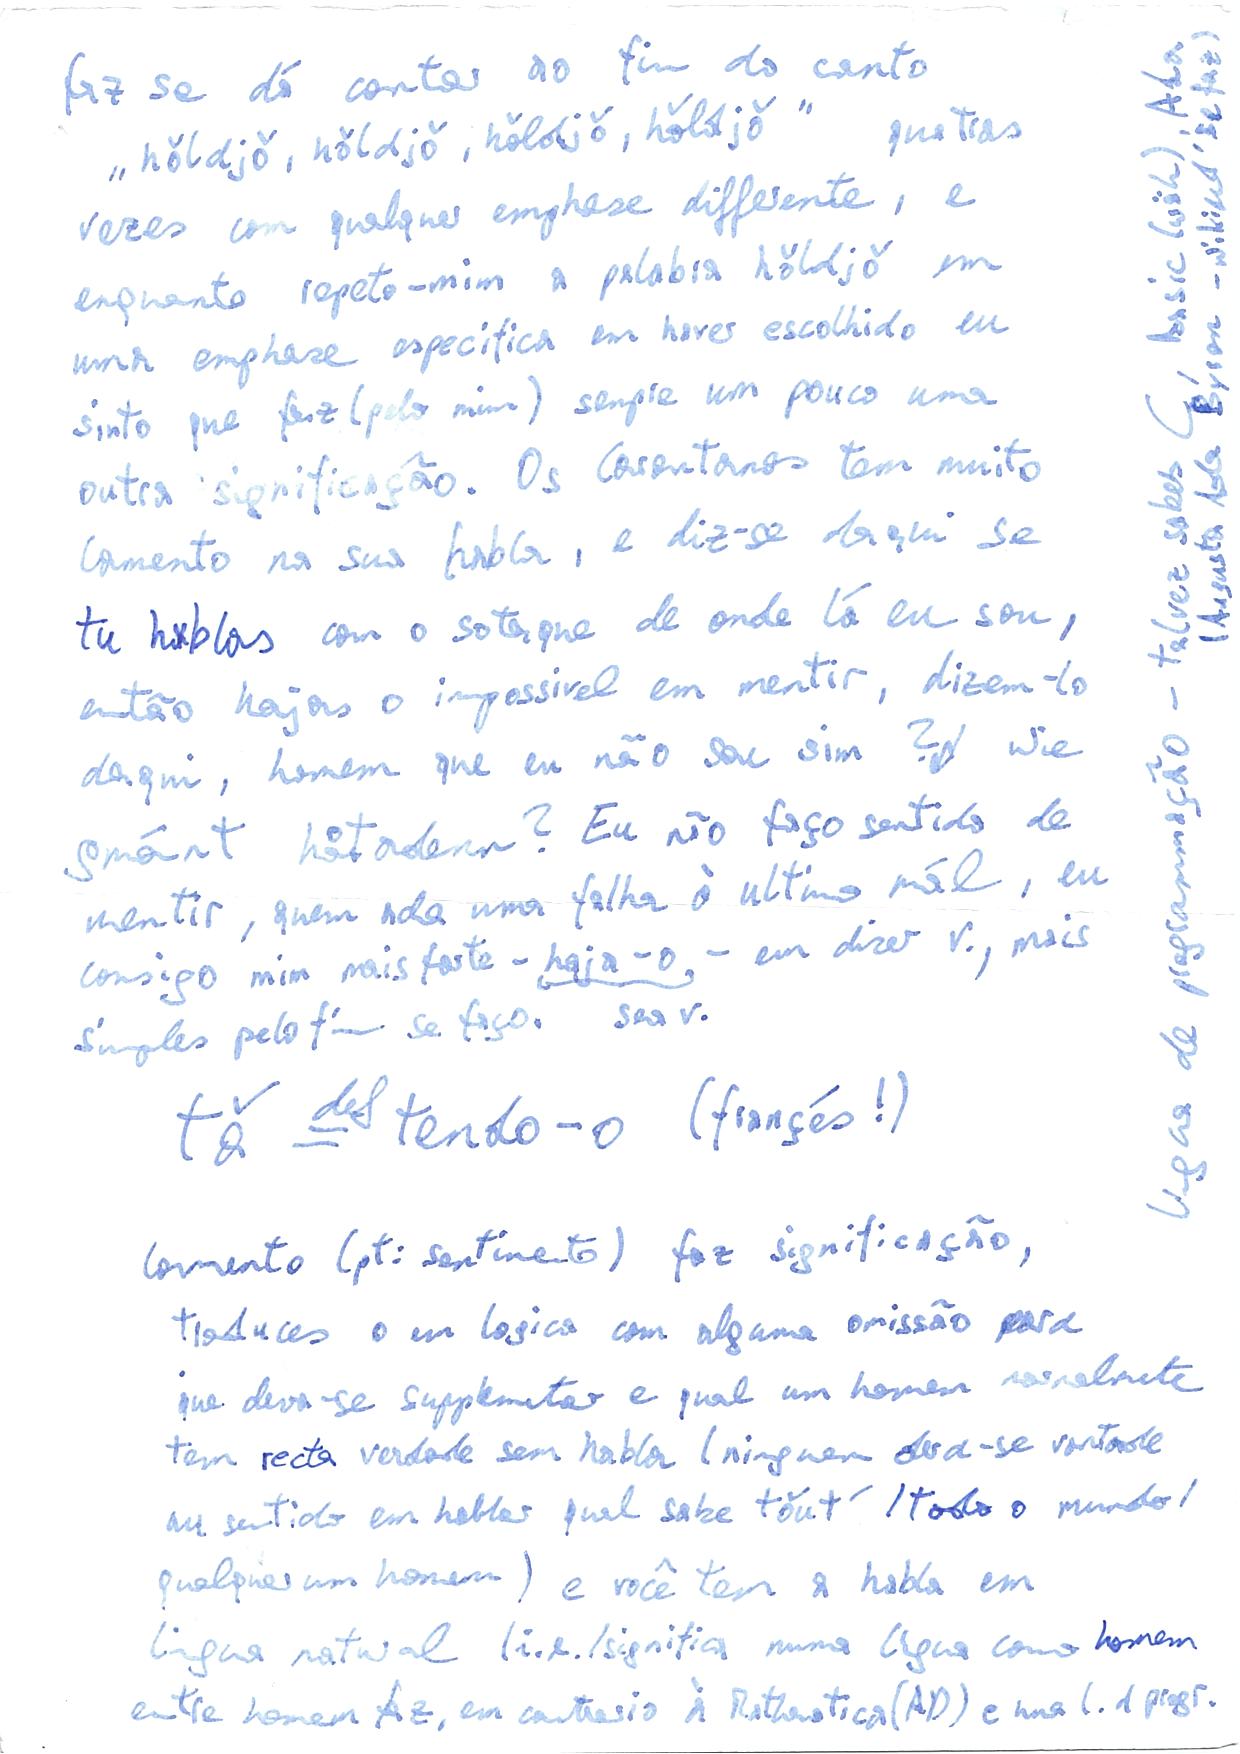 faz se dá contar ao fim do canto
„hŏldjŏ, hŏldjŏ, hŏldjŏ, hŏldjŏ” quatras
vezes com qualquer emphase differente, e
enquanto repeto-mim a palabra hŏldjŏ em
uma emphase especifica em haver escolhido eu
sinto que faz (pelo mim) sempre um pouco uma
outra significação. Os Carantanos tem muito
lamento na sua habla, e diz-se daqui se
tu hablas com o sotaque de onde lá eu sou,
então hajas o impossivel em mentir, dizem-lo
daqui, homem que eu não sou sim? wie
gmánt håtadenn? Eu não faço sentido de
mentir, quem uma falha à ultimo mál, eu
consigo mim mais forte - haja-o, - em dizer v., mais
simples pelo fim se faço. sea v.
tǎ =def tendo-o (françés!)
lamento (pt: sentimento) faz significação,
traduces o em logica com alguma omissão para
que deva-se supplementar e qual um homem normalmente
tem recta verdade sem habla (ninguem dea-se vontade
ou sentido em hablar qual sabe tŏut´ /todo o mundo/
qualquer um homem) e você tem a habla em
lingua natural (i.e./significa numa lígua como homem
entre homem faz, em contrasio à Mathematica(AD) e uma l. d progr.
lígua de programmação - talvez sabes C, basic (uäh), Ada
(Augusta Ada Byron - wikiped' se faz)